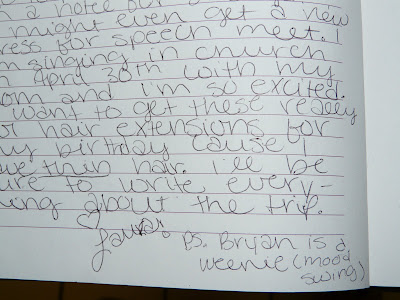 a hotel our
might even get a new
ress for speech meet. I
m singing in church
n April 30th with my
om and i'm so excited.
want to get these really
ol hair extensions for
y birthday cause I
ave thin hair. i'll be
ure to write every-
hing about the trip.
♡
Laura:
Ps. Bryan is a
weenie (mood
swing)